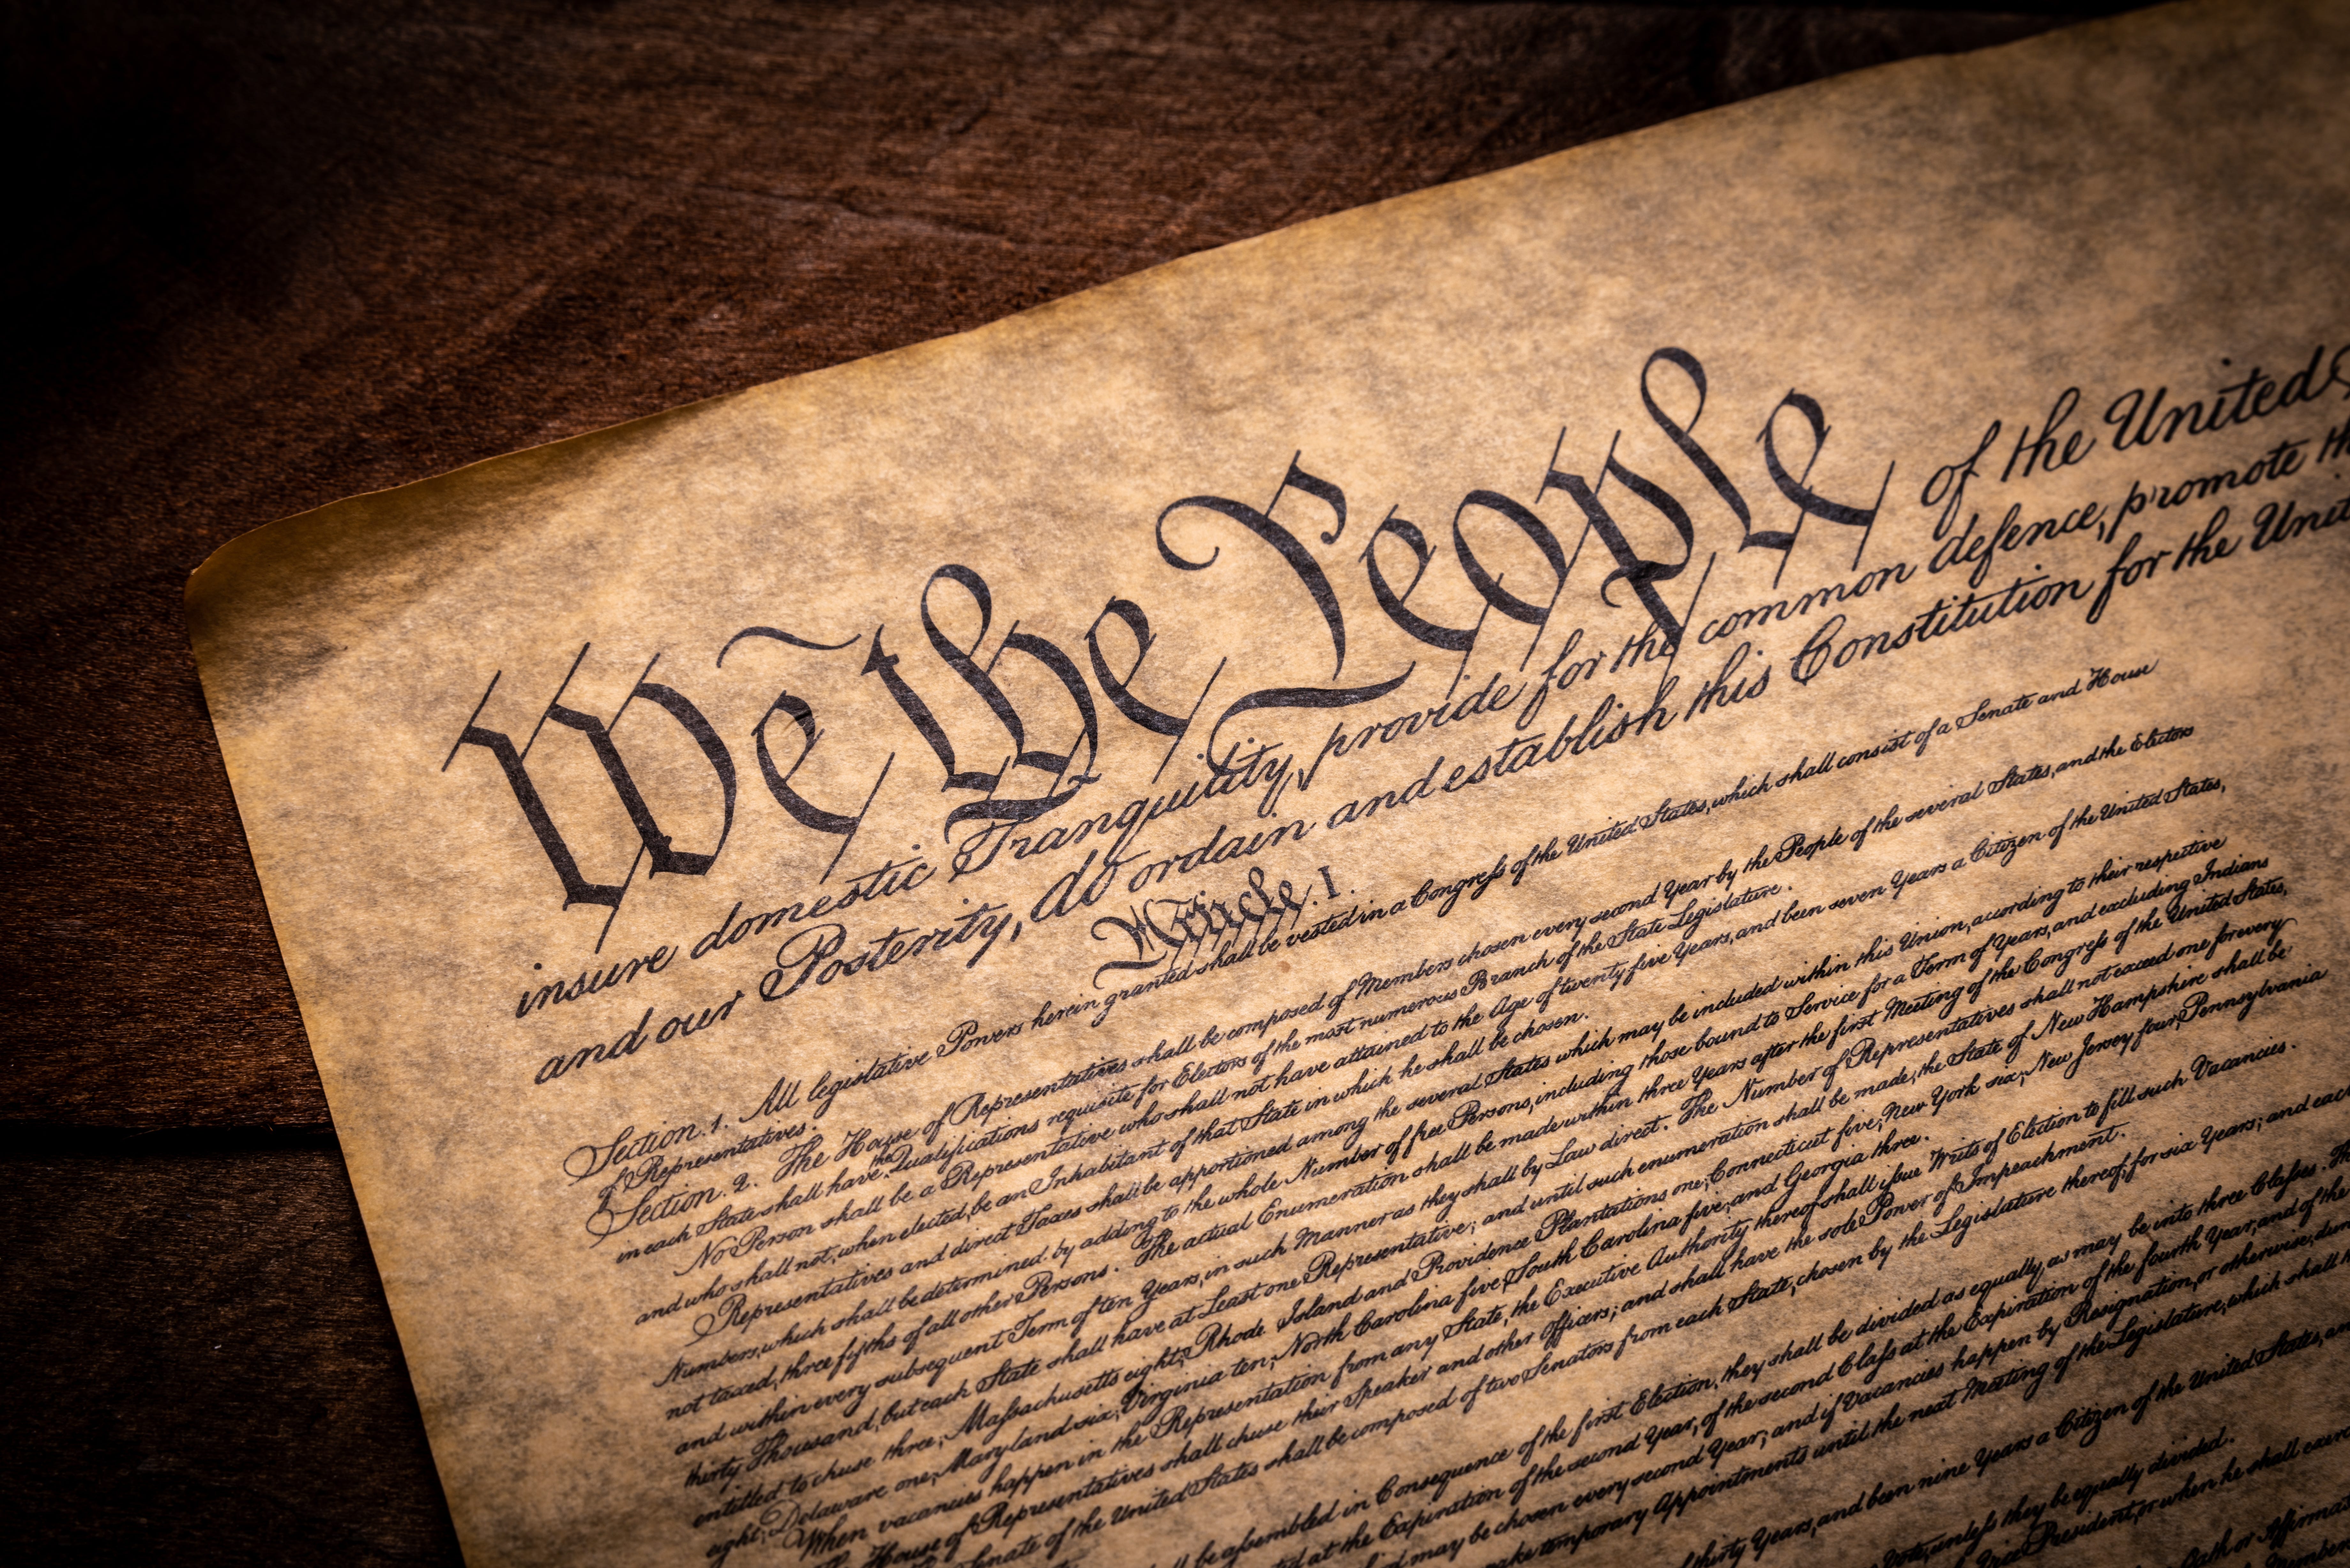 We the People of the United
insure domestic Tranquility, provide for the common defence, promote
and our Posterity, do ordain and establish this Constitution for the
Article. I.
Section. 1. All legislative Powers herein granted shall be vested in a Congress of the United States, which shall consist of a Senate and House
of Representatives.
Section. 2. The House of Representatives shall be composed of Members chosen every second Year by the People of the several States, and the Electors
in each State shall have the Qualifications requisite for Electors of the most numerous Branch of the State Legislature.
No Person shall be a Representative who shall not have attained to the Age of twenty five Years, and been seven Years a Citizen of the United States,
and who shall not, when elected, be an Inhabitant of that State in which he shall be chosen.
Representatives and direct Taxes shall be apportioned among the several States which may be included within this Union, according to their respective
Numbers, which shall be determined by adding to the whole Number of free Persons, including those bound to Service for a Term of Years, and excluding Indians
not taxed, three fifths of all other Persons. The actual Enumeration shall be made within three Years after the first Meeting of the Congress of the United States,
and within every subsequent Term of ten Years, in such Manner as they shall by Law direct. The Number of Representatives shall not exceed one for every
thirty Thousand, but each State shall have at Least one Representative; and until such enumeration shall be made, the State of New Hampshire shall be
entitled to chuse three, Massachusetts eight, Rhode Island and Providence Plantations one, Connecticut five, New York six, New Jersey four, Pennsylvania
eight, Delaware one, Maryland six, Virginia ten, North Carolina five, South Carolina five, and Georgia three.
When vacancies happen in the Representation from any State, the Executive Authority thereof shall issue Writs of Election to fill such Vacancies.
House of Representatives shall chuse their Speaker and other Officers; and shall have the sole Power of Impeachment.
Senate of the United States shall be composed of two Senators from each State, chosen by the Legislature thereof, for six Years; and each
be assembled in Consequence of the first Election, they shall be divided as equally as may be into three Classes.
at the Expiration of the second Year, of the second Class at the Expiration of the fourth Year, and of the
may be chosen every second Year; and if Vacancies happen by Resignation, or otherwise,
make temporary Appointments until the next Meeting of the Legislature, which shall
thirty Years, and been nine Years a Citizen of the United States,
unless they be equally divided.
President, or when he shall
Oath or